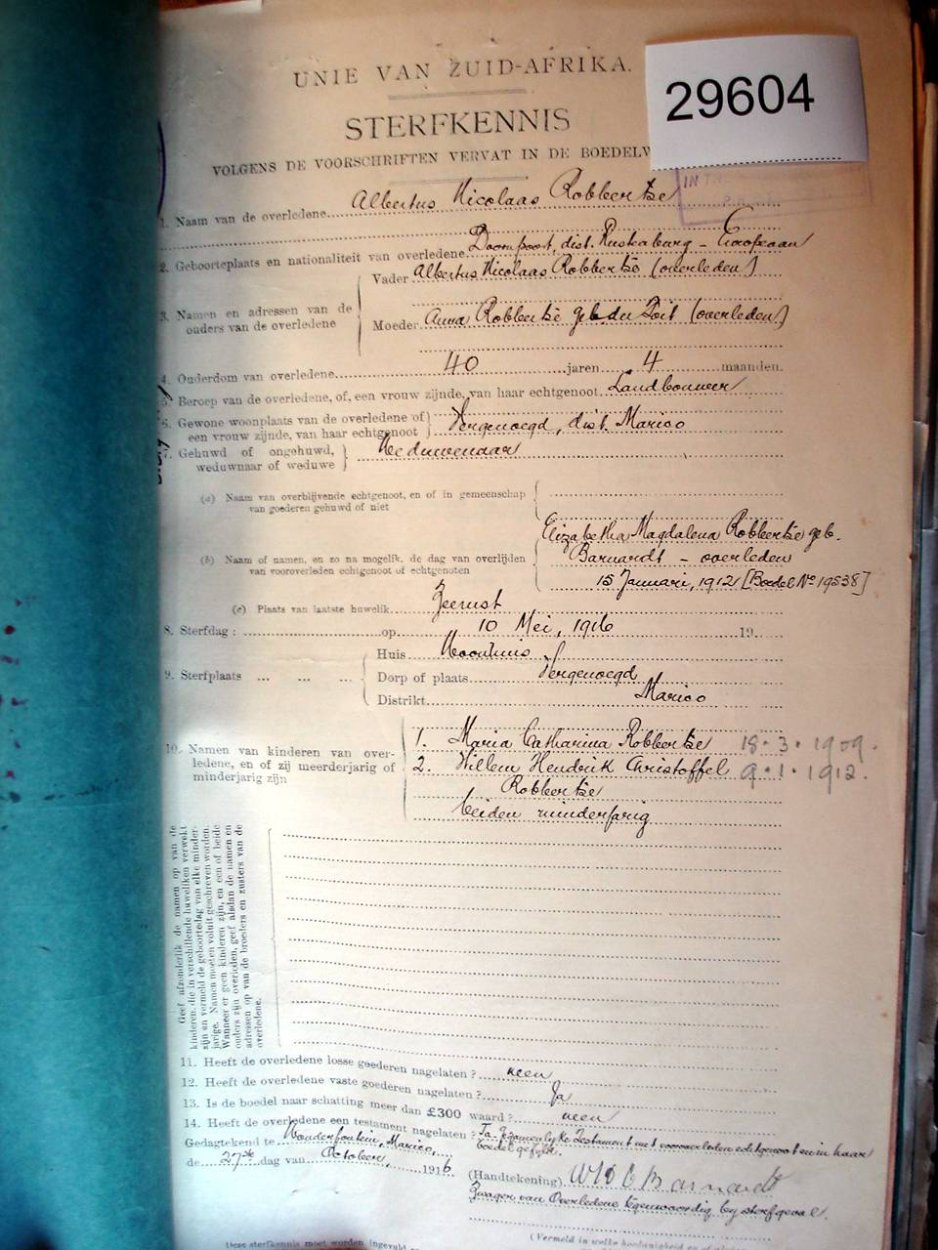 29604
UNIE VAN ZUID-AFRIKA.
STERFKENNIS
VOLGENS DE VOORSCHRIFTEN VERVAT IN DE
1. Naam van de overledene Albertus Nicolaas Robbertse
2. Geboorteplaats en nationaliteit van overledene Doornpoort, dist. Rustenburg - Europeaan
3. Namen en adressen van de ouders van de overledene
Vader Albertus Nicolaas Robbertse (overleden)
Moeder Anna Robbertse geb. du Toit (overleden)
4. Ouderdom van overledene 40 jaren 4 maanden.
5. Beroep van de overledene, of, een vrouw zijnde, van haar echtgenoot Landbouwer
6. Gewone woonplaats van de overledene of
een vrouw zijnde, van haar echtgenoot Vergenoegd, dist. Marico
7. Gehuwd of ongehuwd,
weduwnaar of weduwe Weduwenaar
(a) Naam van overblijvende echtgenoot, en of in gemeenschap
van goederen gehuwd of niet
Elizabetha Magdalena Robbertse geb.
(b) Naam of namen, en zo na mogelik, de dag van overlijden
van vooroverleden echtgenoot of echtgenoten
Barnardt - overleden
15 Januari, 1912 [Boedel No 19538]
(c) Plaats van laatste huwelik Zeerust
8. Sterfdag: op 10 Mei, 1916 19
9. Sterfplaats ... ... ...
Huis Woonhuis
Dorp of plaats Vergenoegd
Distrikt Marico
10. Namen van kinderen van over-
ledene, en of zij meerderjarig of
minderjarig zijn
1. Maria Catharina Robbertse 18.3.1909.
2. Willem Hendrik Christoffel 9.1.1912.
Robbertse
beiden minderjarig
Geef afzonderlik de namen op van de
kinderen, die in verschillende huweliken verwekt
zijn en vermeld de geboortedag van elke minder-
jarige. Namen moeten voluit geschreven worden.
Wanneer er geen kinderen zijn, en een of beide
ouders zijn overleden, geef alsdan de namen en
adressen op van de broeders en zusters van de
overledene.
11. Heeft de overledene losse goederen nagelaten? neen
12. Heeft de overledene vaste goederen nagelaten? Ja
13. Is de boedel naar schatting meer dan £300 waard? neen
14. Heeft de overledene een testament nagelaten? Ja. Gezamenlyke Testament met vooroverleden echtgenoot en in haar
boedel gefyld.
Gedagtekend te Wonderfontein, Marico,
de 27ste dag van October, 1916
(Handtekening) WHC Barnardt
Zwager van Overledene tegenwoordig by sterfgeval.
Deze sterfkennis moet worden
(Vermeld in welke hoedanigheid